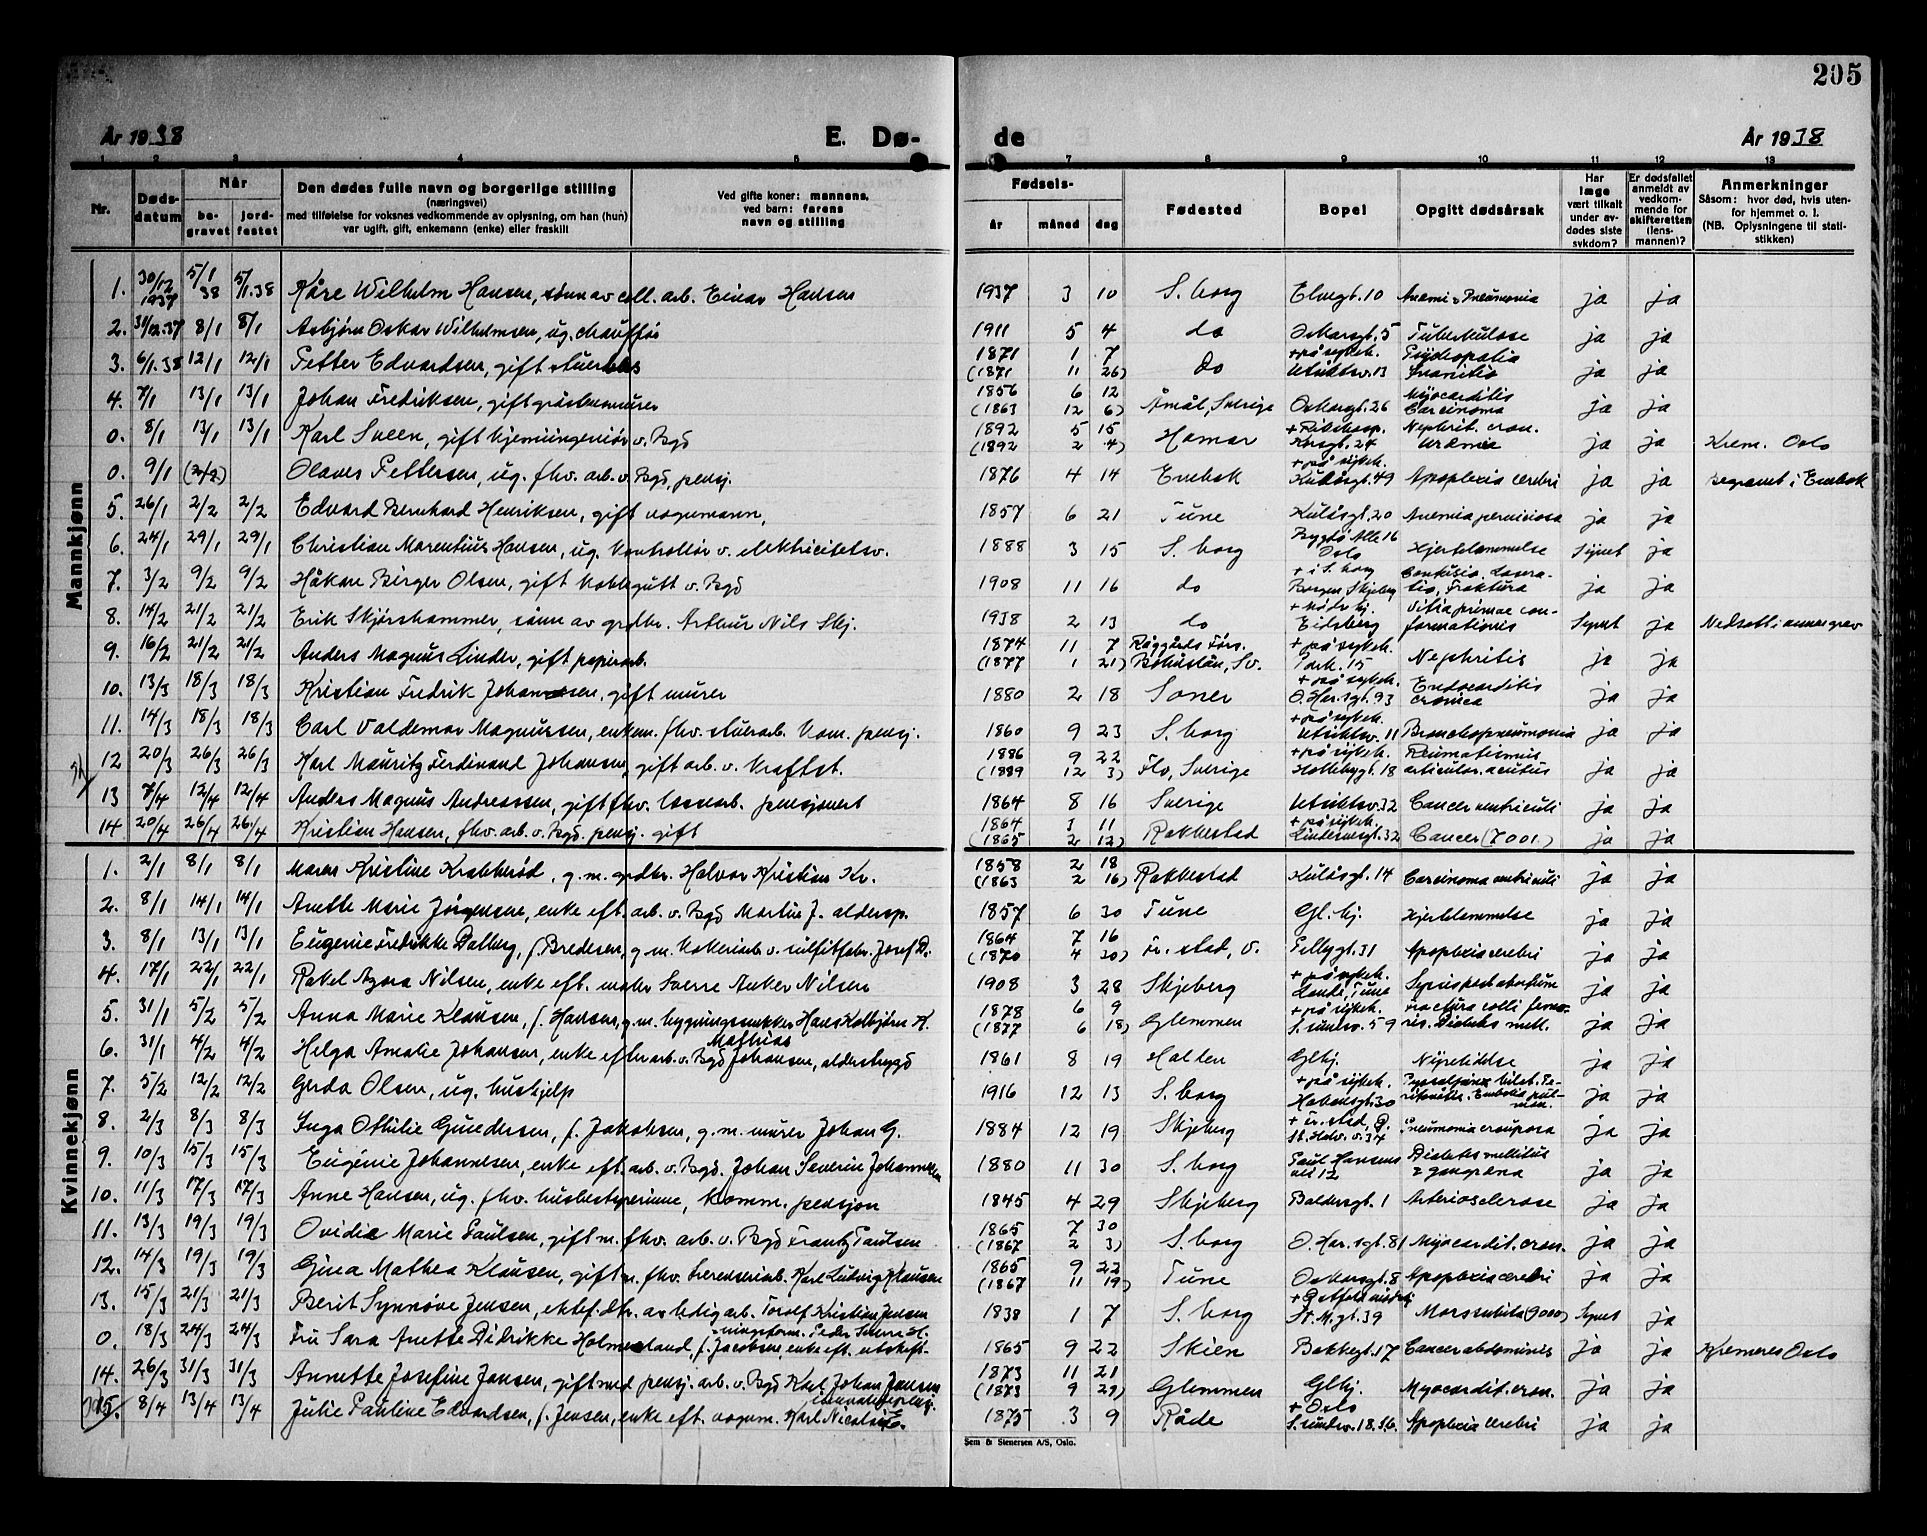 205
År 1938 E. Dø- de År 1938
1 2 3 4 5 6 7 8 9 10 11 12 13
Nr. Døds-datum Når be-gravet jord-festet Den dødes fulle navn og borgerlige stilling (næringsvei) med tilføielse for voksnes vedkommende av oplysning, om han (hun) var ugift, gift, enkemann (enke) eller fraskill Ved gifte koner: mannens, ved barn: farens navn og stilling Fødsels- år måned dag Fødested Bopel Opgitt dødsårsak Har læge vært tilkalt under av-dødes siste sykdom? Er dødsfallet anmeldt av vedkom-mende for skifteretten (lens-mannen)? Anmerkninger Såsom: hvor død, hvis uten-for hjemmet o. l. (NB. Oplysningene til stati-stikken)
Mannkjønn
1. 30/12 1937 5/1 38 5/1.38 Kåre Wilhelm Hansen, sønn av cell. arb. Einar Hansen 1937 3 10 S. borg Elvegt. 10 Anemi & Pneumonia ja ja
2. 31/12.37 8/1 8/1 Asbjørn Oskar Wilhelmsen, ug. chauffør 1911 5 4 do Oskarsgt. 5 Tuberkulose ja ja
3. 6/1.38 12/1 12/1 Petter Edvardsen, gift 1871 1 7 (1871 11 26) do + på sykeh. Utsiktsv. 13 Psychopatia ja ja
4. 7/1 13/1 13/1 Johan Fredriksen, gift gråstensmurer 1856 6 12 (1863 12 6) Åmål, Sverige Oskarsgt. 26 Myocarditis Carcinoma ja ja
0. 8/1 13/1 13/1 Karl Sveen, gift kjemiingeniør v. Bgd 1892 5 15 (1892 2 4) Hamar + Rikshosp. Korsgt. 24 Nephrit. cron. Uremia ja ja Krem. Oslo
0. 9/1 (2/2) Olaves Pettersen, ug. fhv. arb. v. Bgd, pensj. 1876 4 14 Enebak + på sykeh. Kulåsgt. 49 Apoplexia cerebri ja ja Begravet i Enebak
5. 26/1 2/2 2/2 Edvard Bernhard Henriksen, gift vognmann, 1857 6 21 Tune Kulåsgt. 20 Anemia perniciosa ja ja
6. 24/1 29/1 29/1 Christian Marentius Hansen, ug. kontrollør v. elektricitetsv. 1888 3 15 S. borg Bygdø Alle 16 Oslo Hjertelammelse Synet ja
7. 3/2 9/2 9/2 Håkon Birger Olsen, gift koblegutt v. Bgd 1908 11 16 do + i S. borg Borgen Skjeberg Contusio. Lacera-tio, Fraktura ja ja
8. 14/2 21/2 21/2 Erik Skjørshammer, sønn av grdbr. Arthur Nils Skj. 1938 2 13 do Eidsberg Vitia primae con-formationis Synet ja Nedsatt i annes grav
9. 16/2 21/2 21/2 Anders Magnus Linder, gift papirarb. 1874 11 7 (1877 1 21) Bohuslän, Sv. + på sykeh. Park. 15 Nephritis ja ja
10. 13/3 18/3 18/3 Kristian Fredrik Johansen, gift murer 1880 2 18 Soner + på sykeh. O. Har. sgt. 93 Endocarditis cronica ja ja
11. 14/3 18/3 18/3 Carl Valdemar Magnussen, enkem. fhv. stuerarb. kom. pensj. 1860 9 23 S. borg + på sykeh. Utsiktsv. 11 Bronchopneumonia ja ja
12 20/3 26/3 26/3 Karl Mauritz Ferdinand Johansen, gift arb. v. Kraftst. 1886 9 22 (1889 12 3) Flo, Sverige + på sykeh. 18 Reumatismus articular. acutus ja ja
13 7/4 12/4 12/4 Anders Magnus Andreassen, gift fhv. lossearb. pensjonert 1864 8 16 Sverige Utsiktsv. 32 Cancer ventriculi ja ja
14 20/4 26/4 26/4 Kristian Hansen, fhv. arb. v. Bgd. pensj. gift 1864 3 11 (1865 2 12) Rakkestad + på sykeh. Lindemsgt. 32 Cancer (7001) ja ja
Kvinnekjønn
1. 2/1 8/1 8/1 Maren Kristine Krabberød, g. m. grdbr. Halvor Kristian Kr. 1858 2 18 (1863 2 16) Rakkestad Kulåsgt. 14 Carcinoma ventriculi ja ja
2. 8/1 14/1 14/1 Anette Marie Jørgensen, enke eft. arb. v. Bgd Martin J. aldersp. 1857 6 30 Tune Gl. hj. Hjertelammelse ja ja
3. 8/1 13/1 13/1 Eugenie Fredrikke Dalberg, f. Bredesen, g. m. kokeriarb. v. sulfitfabr. Josef D. 1864 7 16 (1870 4 30) Fr. stad, V. Pellygt. 31 Apoplexia cerebri ja ja
4. 17/1 22/1 22/1 Rakel Agora Nilsen, enke eft. maler Sverre Anker Nilsen 1908 3 28 Skjeberg + på sykeh. Lande, Tune Sepsis post abortum ja ja
5. 31/1 5/2 5/2 Anna Marie Klausen, f. Hansen, g. m. bygningssnekker Hans Kolbjørn K. 1878 6 9 (1877 6 18) Glemmen + på sykeh. S. sundsv. 59 Fractura colli femo-ris. Diabetes mell. ja ja
6. 31/1 4/2 4/2 Helga Amalie Johansen, enke efter arb. v. Bgd Mathias Johansen, alderstrygd 1861 8 19 Halden Glhj. Nyrelidelse ja ja
7. 5/2 12/2 12/2 Gerda Olsen, ug. hushjelp 1916 12 13 S. borg + på sykeh. Håkonsgt. 30 Pyosalpinx bilat. Pe-ritonitis. Embolia pul-mon. ja ja
8. 2/3 8/3 8/3 Inga Othilie Gundersen, f. Jakobsen, g. m. murer Johan G. 1884 12 19 Skjeberg + Fr. stad, G. St. Halv. v. 34 Pneumonia crouposa ja ja
9. 10/3 15/3 15/3 Eugénie Johannesen, enke eft. arb. v. Bgd. Johan Severin Johannesen 1880 11 30 S. borg Paul Hansens vei 12 Diabetes mellitus & gangrena ja ja
10. 11/3 17/3 17/3 Anne Hansen, ug. fhv. husbestyrerinne, Komm. pensjon 1845 4 29 Skjeberg Baldersgt. 1 Arteriosclerose ja ja
11. 13/3 19/3 19/3 Ovidia Marie Paulsen, gift m. fhv. arb. v. Bgd Frantz Paulsen 1865 7 30 (1867 2 3) S. borg O. Har. sgt. 81 Myocardit. cron. ja ja
12. 14/3 19/3 19/3 Gina Mathea Klausen, gift m. fhv. Karl Ludvig Klausen 1865 9 22 (1867 11 19) Tune Oskarsgt. 8 Apoplexia cerebri ja ja
13. 15/3 21/3 21/3 Berit Synnøve Jensen, ektef. dtr. av leilig. arb. Torolf Kristian Jensen 1838 1 7 S. borg St. M. gt. 39 Mors subita (9000) Synet ja
0. 18/3 24/3 24/3 Fru Sara Anette Didrikke Holmesland, f. Jacobsen, enke eft. utskift-ningsform. Peder Sverre H. 1865 9 22 Skien Bakkegt. 17 Cancer abdominis ja ja Kremeres Oslo
14. 26/3 31/3 31/3 Annette Josefine Jansen, gift med pensj. arb. v. Bgd Karl Johan Jansen 1873 11 21 (1873 9 29) Glemmen Glhj. Myocardit. cron. ja ja
15. 8/4 13/4 13/4 Julie Pauline Edvardsen, f. Jensen, enke eft. vognm. Karl Nicolai E. 1875 3 9 Råde + Oslo S. sundsv. 18. S.b. Apoplexia cerebri ja ja
Sem & Stenersen A/S, Oslo.